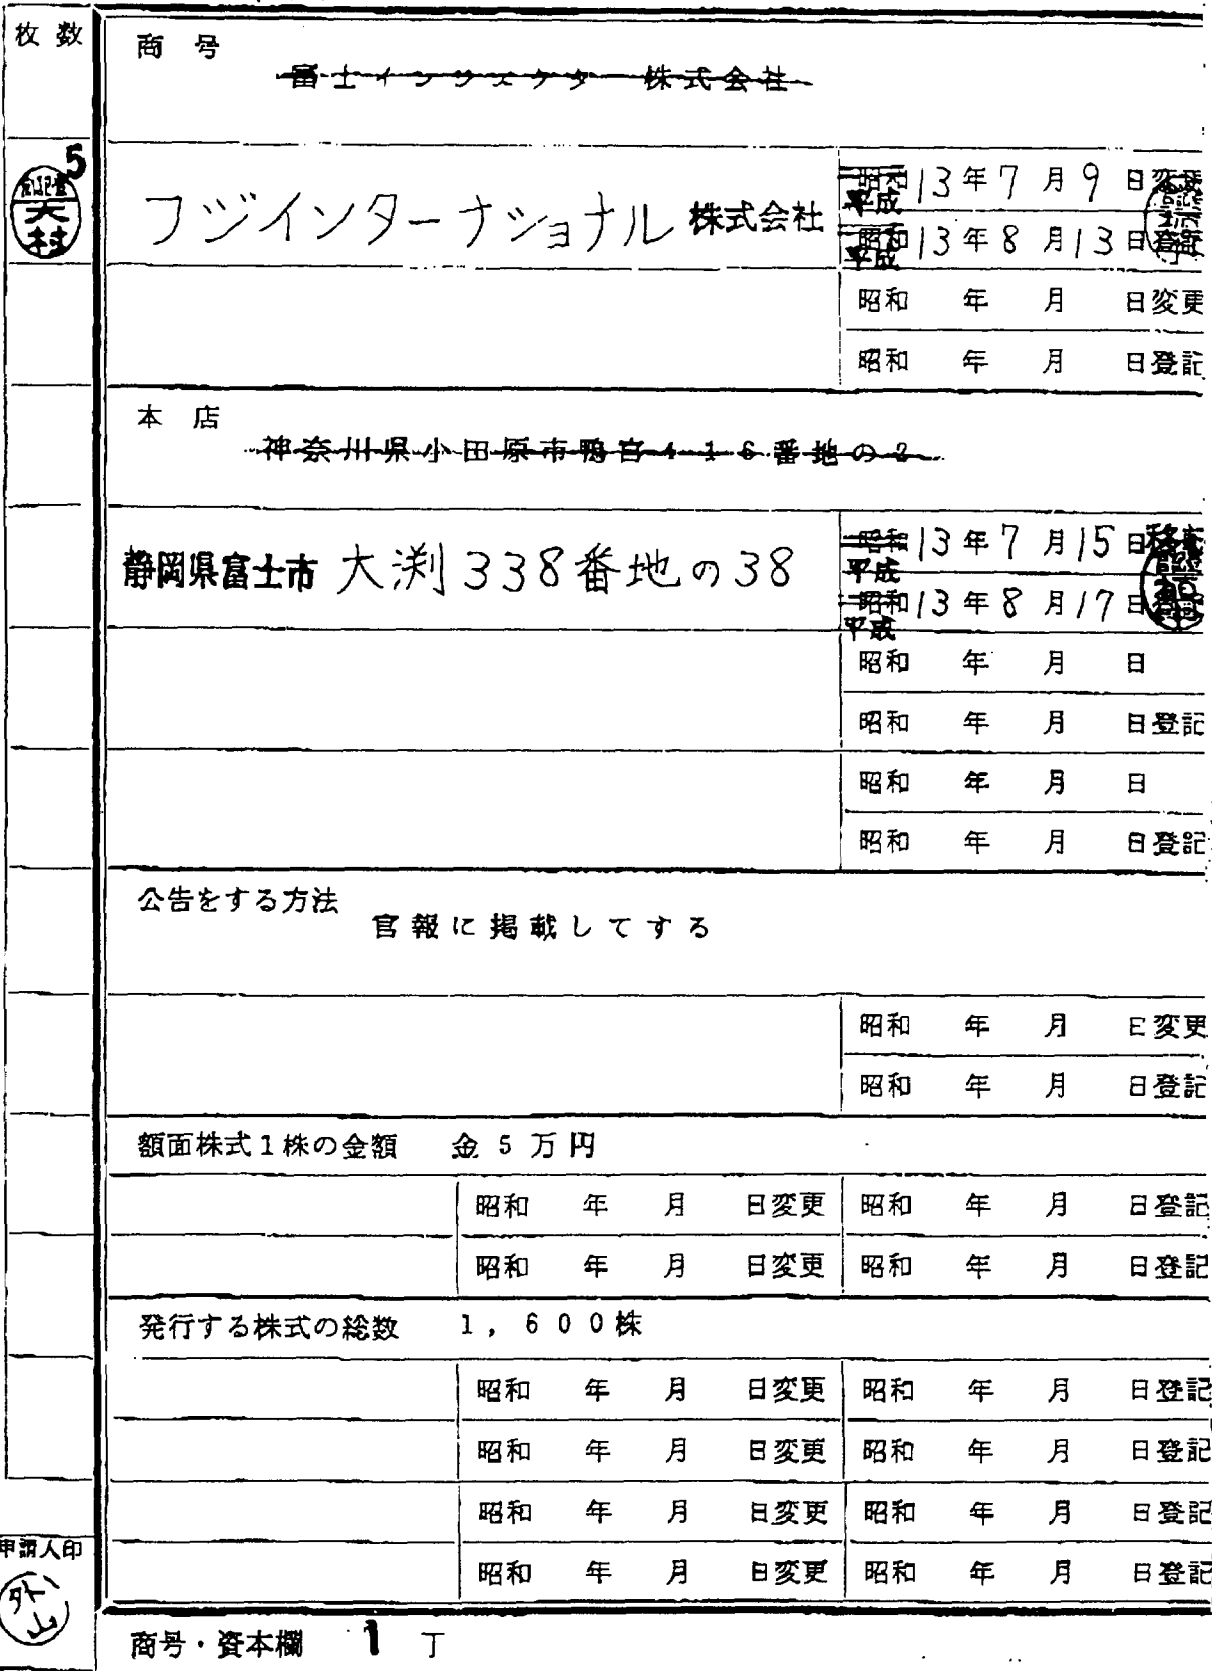 枚数
商号
富士インサェクター株式会社
5
天村
フジインターナショナル株式会社
昭和 平成 13年7月9日変更
昭和 平成 13年8月13日登記
昭和 年 月 日変更
昭和 年 月 日登記
本店
神奈川県小田原市鴨宮416番地の2
静岡県富士市大渕338番地の38
昭和 平成 13年7月15日移転
昭和 平成 13年8月17日登記
昭和 年 月 日
昭和 年 月 日登記
昭和 年 月 日
昭和 年 月 日登記
公告をする方法
官報に掲載してする
昭和 年 月 日変更
昭和 年 月 日登記
額面株式1株の金額 金5万円
昭和 年 月 日変更 昭和 年 月 日登記
昭和 年 月 日変更 昭和 年 月 日登記
発行する株式の総数 1,600株
昭和 年 月 日変更 昭和 年 月 日登記
昭和 年 月 日変更 昭和 年 月 日登記
昭和 年 月 日変更 昭和 年 月 日登記
昭和 年 月 日変更 昭和 年 月 日登記
申請人印
外山
商号・資本欄 1 丁